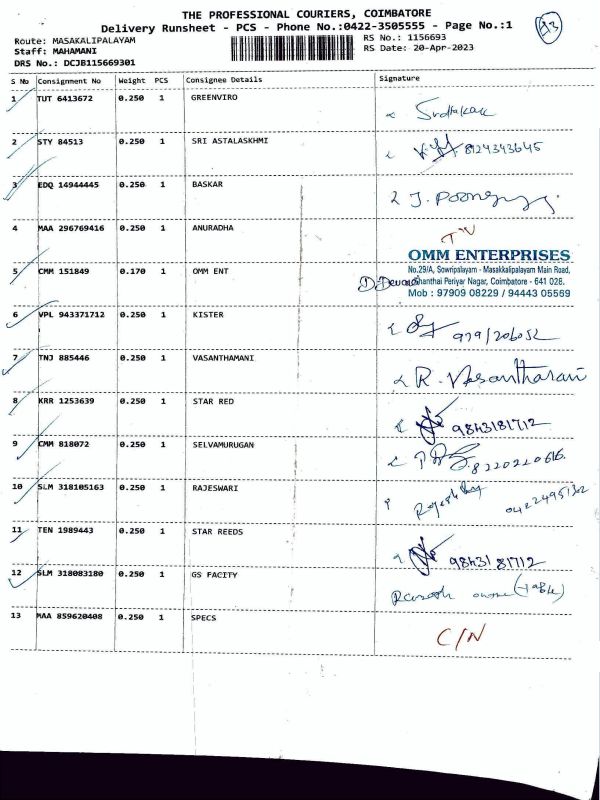 THE PROFESSIONAL COURIERS, COIMBATORE
Delivery Runsheet - PCS - Phone No.:0422-3505555 - Page No.:1
Route: MASAKALIPALAYAM RS No.: 1156693
Staff: MAHAMANI RS Date: 20-Apr-2023
DRS No.: DCJB115669301
93
S No Consignment No Weight PCS Consignee Details Signature
1 TUT 6413672 0.250 1 GREENVIRO
2 STY 84513 0.250 1 SRI ASTALASKHMI 8124343645
3 EDQ 14944445 0.250 1 BASKAR
4 MAA 296769416 0.250 1 ANURADHA
OMM ENTERPRISES
No.29/A, Sowripalayam - Masakkalipalayam Main Road,
5 CMM 151849 0.170 1 OMM ENT Shanthai Periyar Nagar, Coimbatore - 641 028.
Mob : 97909 08229 / 94443 05569
6 VPL 943371712 0.250 1 KISTER
7 TNJ 885446 0.250 1 VASANTHAMANI R.
8 KRR 1253639 0.250 1 STAR RED 9843181712
9 CMM 818072 0.250 1 SELVAMURUGAN
10 SLM 318105163 0.250 1 RAJESWARI
11 TEN 1989443 0.250 1 STAR REEDS 9843181712
12 SLM 318083180 0.250 1 GS FACITY
13 MAA 859620408 0.250 1 SPECS C/N